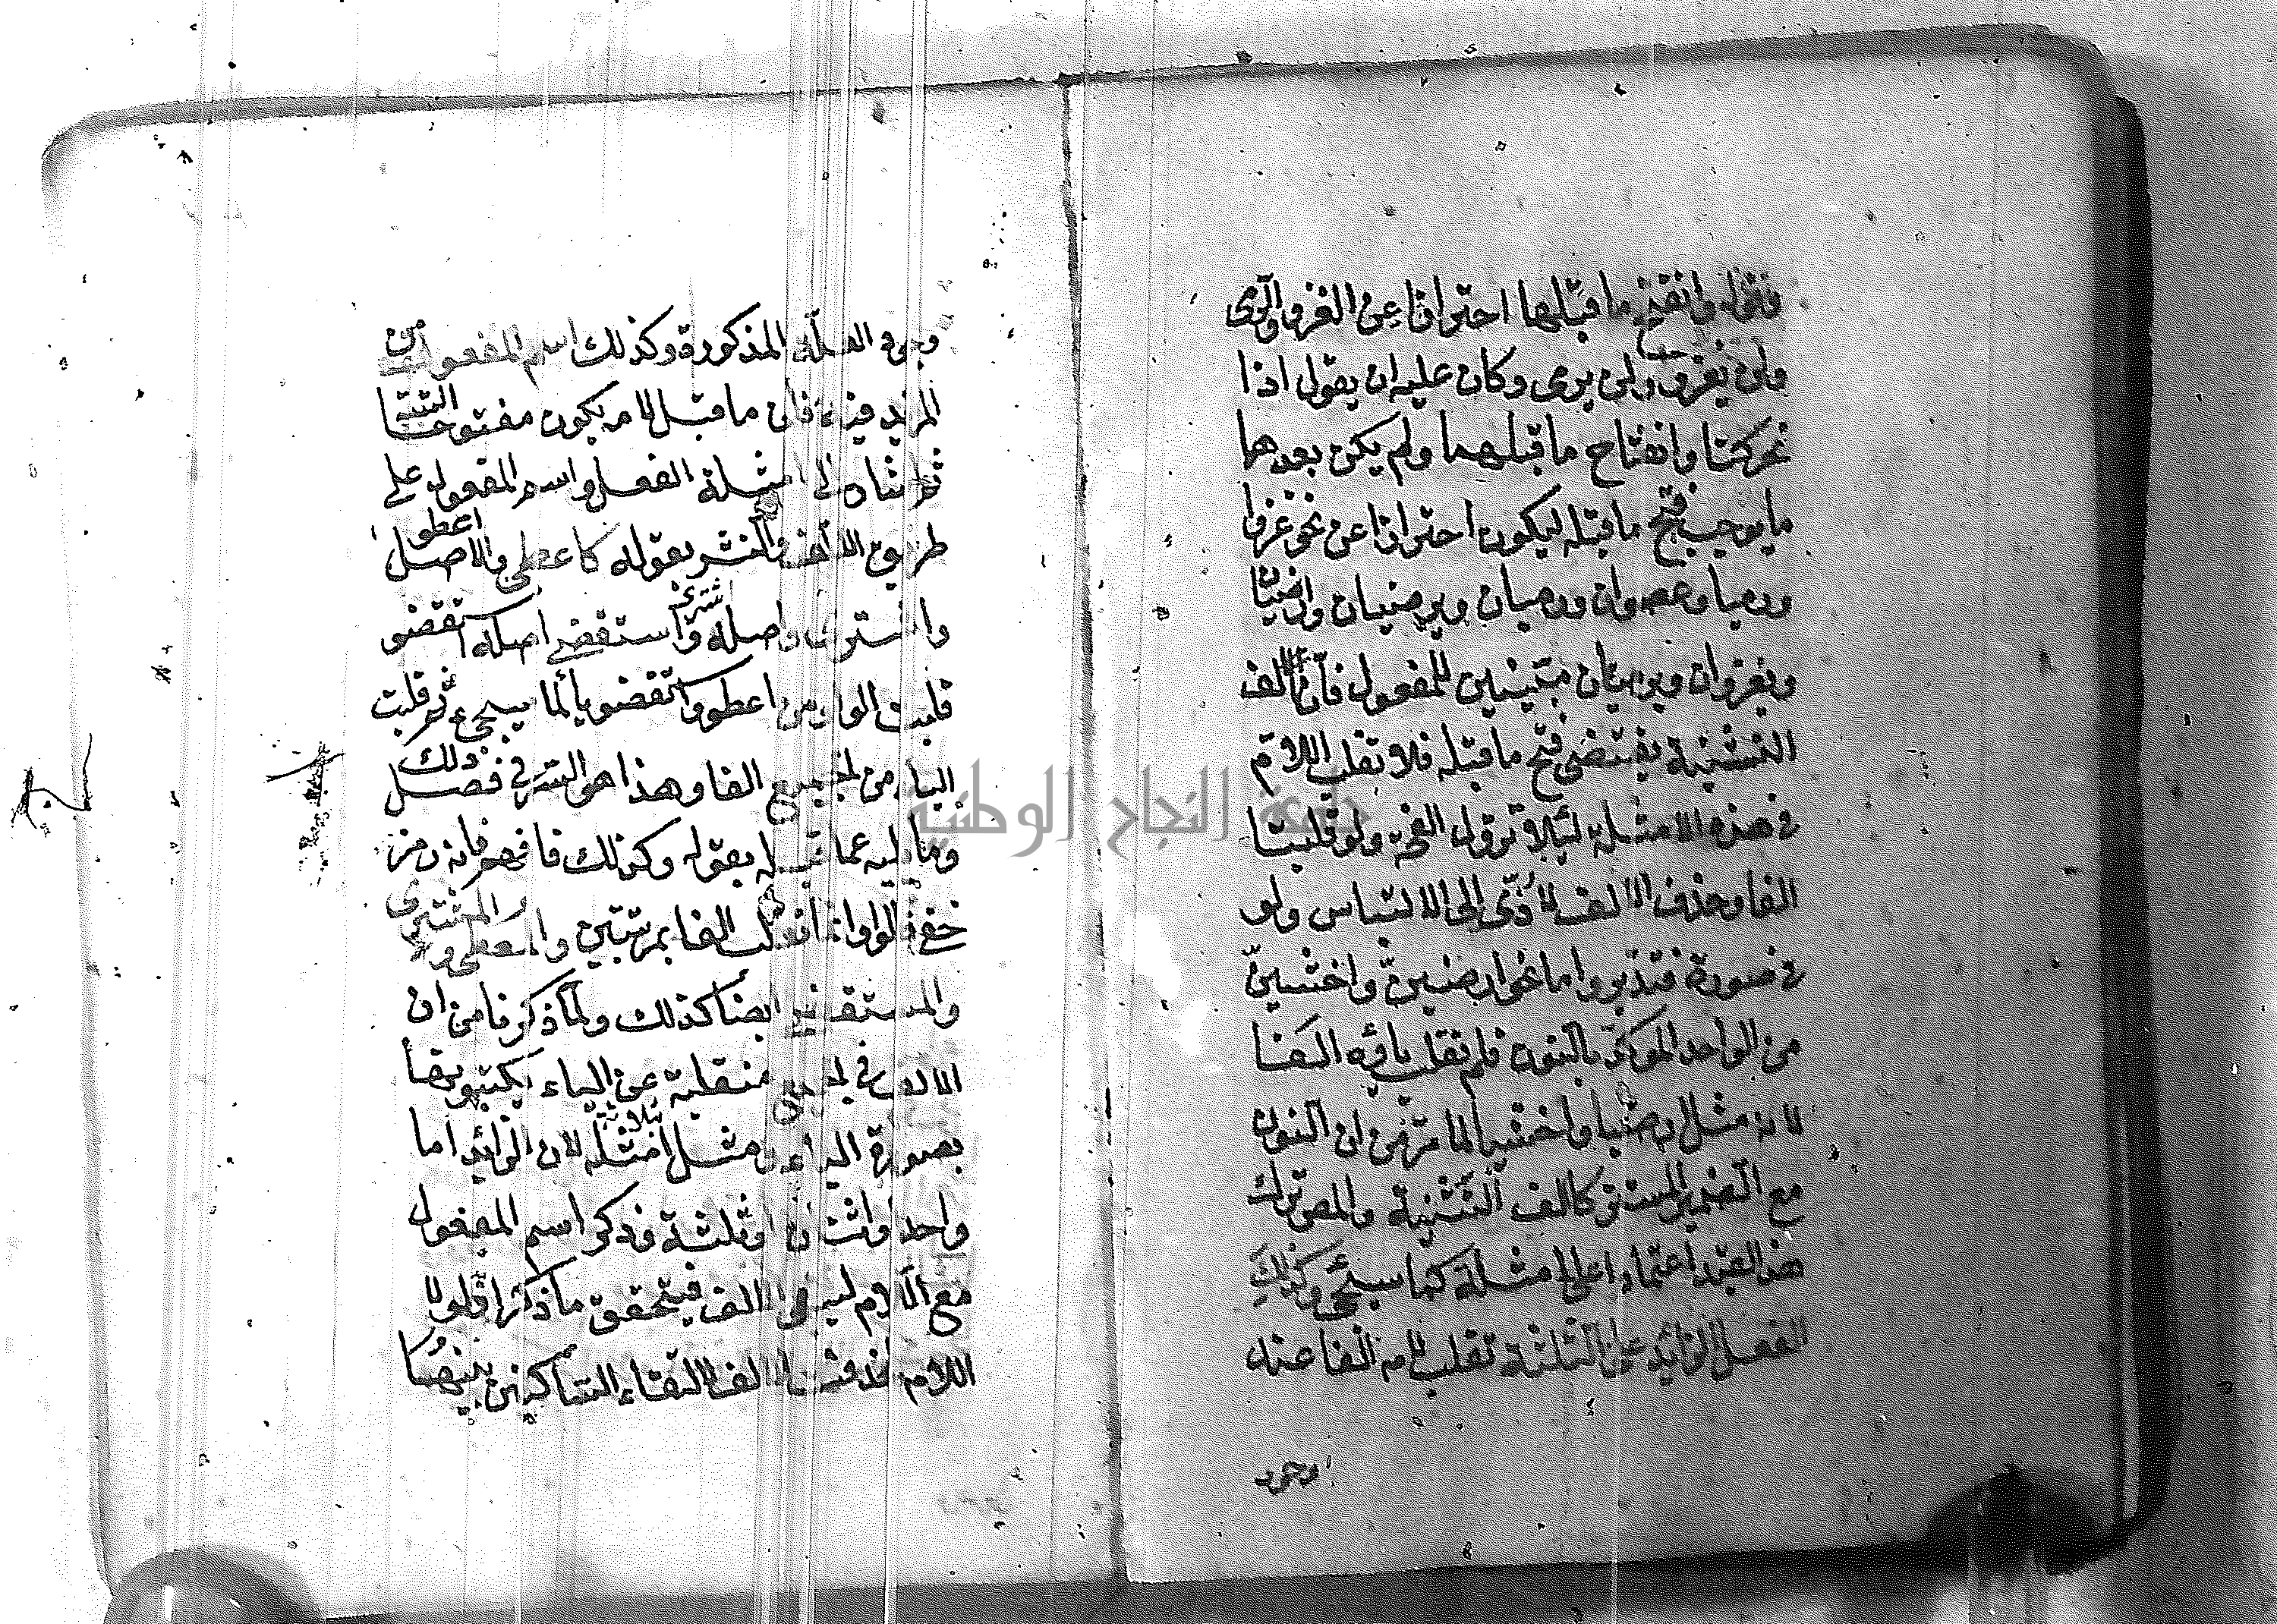 فقوله وانفتح ما قبلها احترازا عن الغزو والرمى
ولن يغزو ولن يرمى وكان عليه ان يقول اذا
تحركتا وانفتاح ما قبلهما ولم يكن بعدهما
ما يوجب فتح ما قبله ليكون احترازا عن نحو غزوا
ورميا وعصوان ورحيان ويرضيان وارضيا
ويغزوان ويرميان مبنيين للمفعول فان الف
التثنية يقتضى فتح ما قبله فلا تقلب اللام
فى هذه الامثلة لئلا تزول الفتحة ولو قلبتا
الفا وحذف الالف لادّى الى الالتباس ولو
فى صورة فتدبر واما نحو ارضينّ واخشينّ
من الواحد الموكد بالنون فلم تقلب ياؤه الفا
لانه مثل ارضيا واخشيا لما مر من ان النون
مع الضمير المستتر كالف التثنية والمص ترك
هذا القيد اعتمادا على امثلة كما سيجئ وكذلك
الفعل الزائد على الثلثة تقلب لامه الفا عند
وجود
وجود العلة المذكورة وكذلك اسم المفعول من
المزيد فيه فان ما قبل لامه يكون مفتوحا البتة
ثم اشار الى امثلة الفعل واسم المفعول على
طريق اللف والنشر بقوله كاعطى والاصل اعطو
واشترى واصله اشترى واستقضى اصله استقضو
قلبت الواو من اعطو واستقضو ياء لما سيجئ ثم قلبت
الياء من الجميع الفا وهذا هو السر فى فصل ذلك
وما يليه عما قبله بقوله وكذلك فافهم فانه رمز
خفى
والمستقضى ايضا كذلك ولما ذكرنا من ان
الالف فى الجميع منقلبة عن الياء يكتبونها
بصورة الياء ومثل ثلاثة امثلة لان الزائد اما
واحد او اثنان او ثلثة وذكر اسم المفعول
مع اللام ليبقى الالف فيتحقق ما ذكر اذ لولا
اللام لحذفت الالف لالتقاء الساكنين بينهما
جامعة النجاح الوطنية